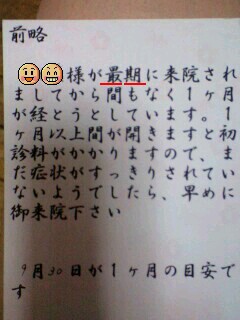 前略
様が最期に来院され
ましてから間もなく1ヶ月
が経とうとしています。1
ヶ月以上間が開きますと初
診料がかかりますので、ま
だ症状がすっきりされてい
ないようでしたら、早めに
御来院下さい
9月30日が1ヶ月の目安で
す